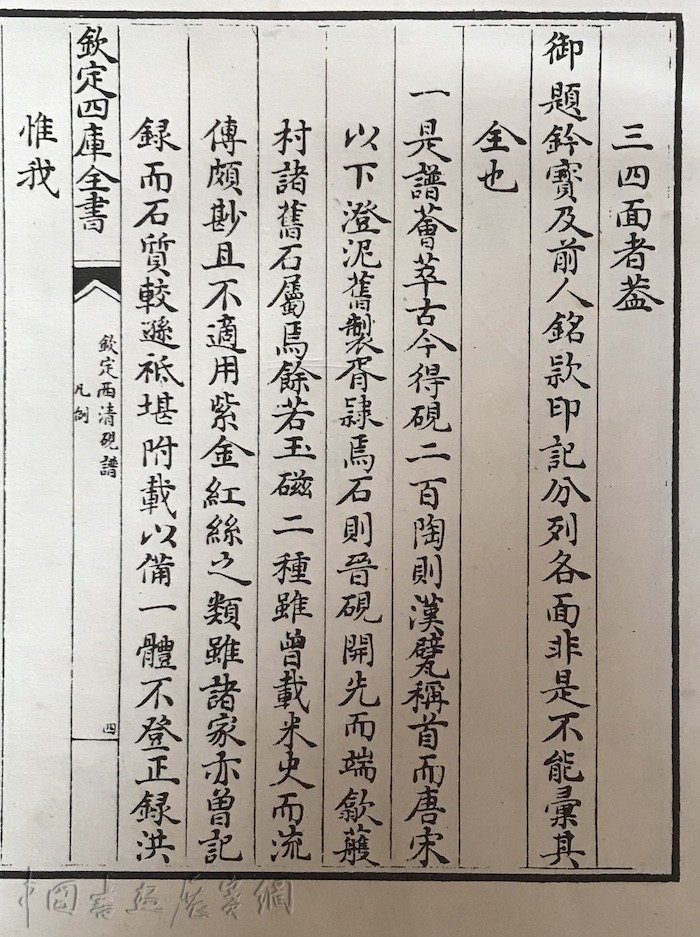 三四面者葢
御題鈐寶及前人銘款印記分列各面非是不能彙其
全也
一是譜薈萃古今得硯二百陶則漢甓稱首而唐宋
以下澄泥舊製胥隷焉石則晉硯開先而端歙蘓
村諸舊石屬焉餘若玉磁二種雖曾載米史而流
傳頗尠且不適用紫金紅絲之類雖諸家亦曾記
録而石質較遜祗堪附載以備一體不登正録洪
欽定四庫全書
欽定西清硯譜
凡例
四
惟我
中國書畫展賽網